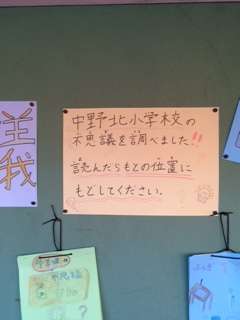 中野北小学校の
不思議を調べました!!
読んだらもとの位置に
もどしてください。